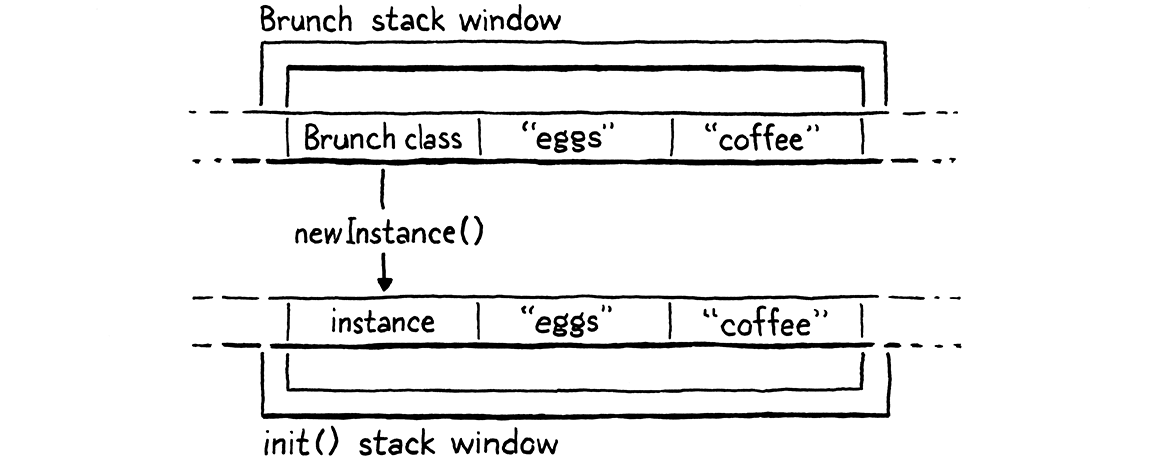 Brunch stack window
Brunch class “eggs” “coffee”
newInstance()
instance “eggs” “coffee”
init() stack window